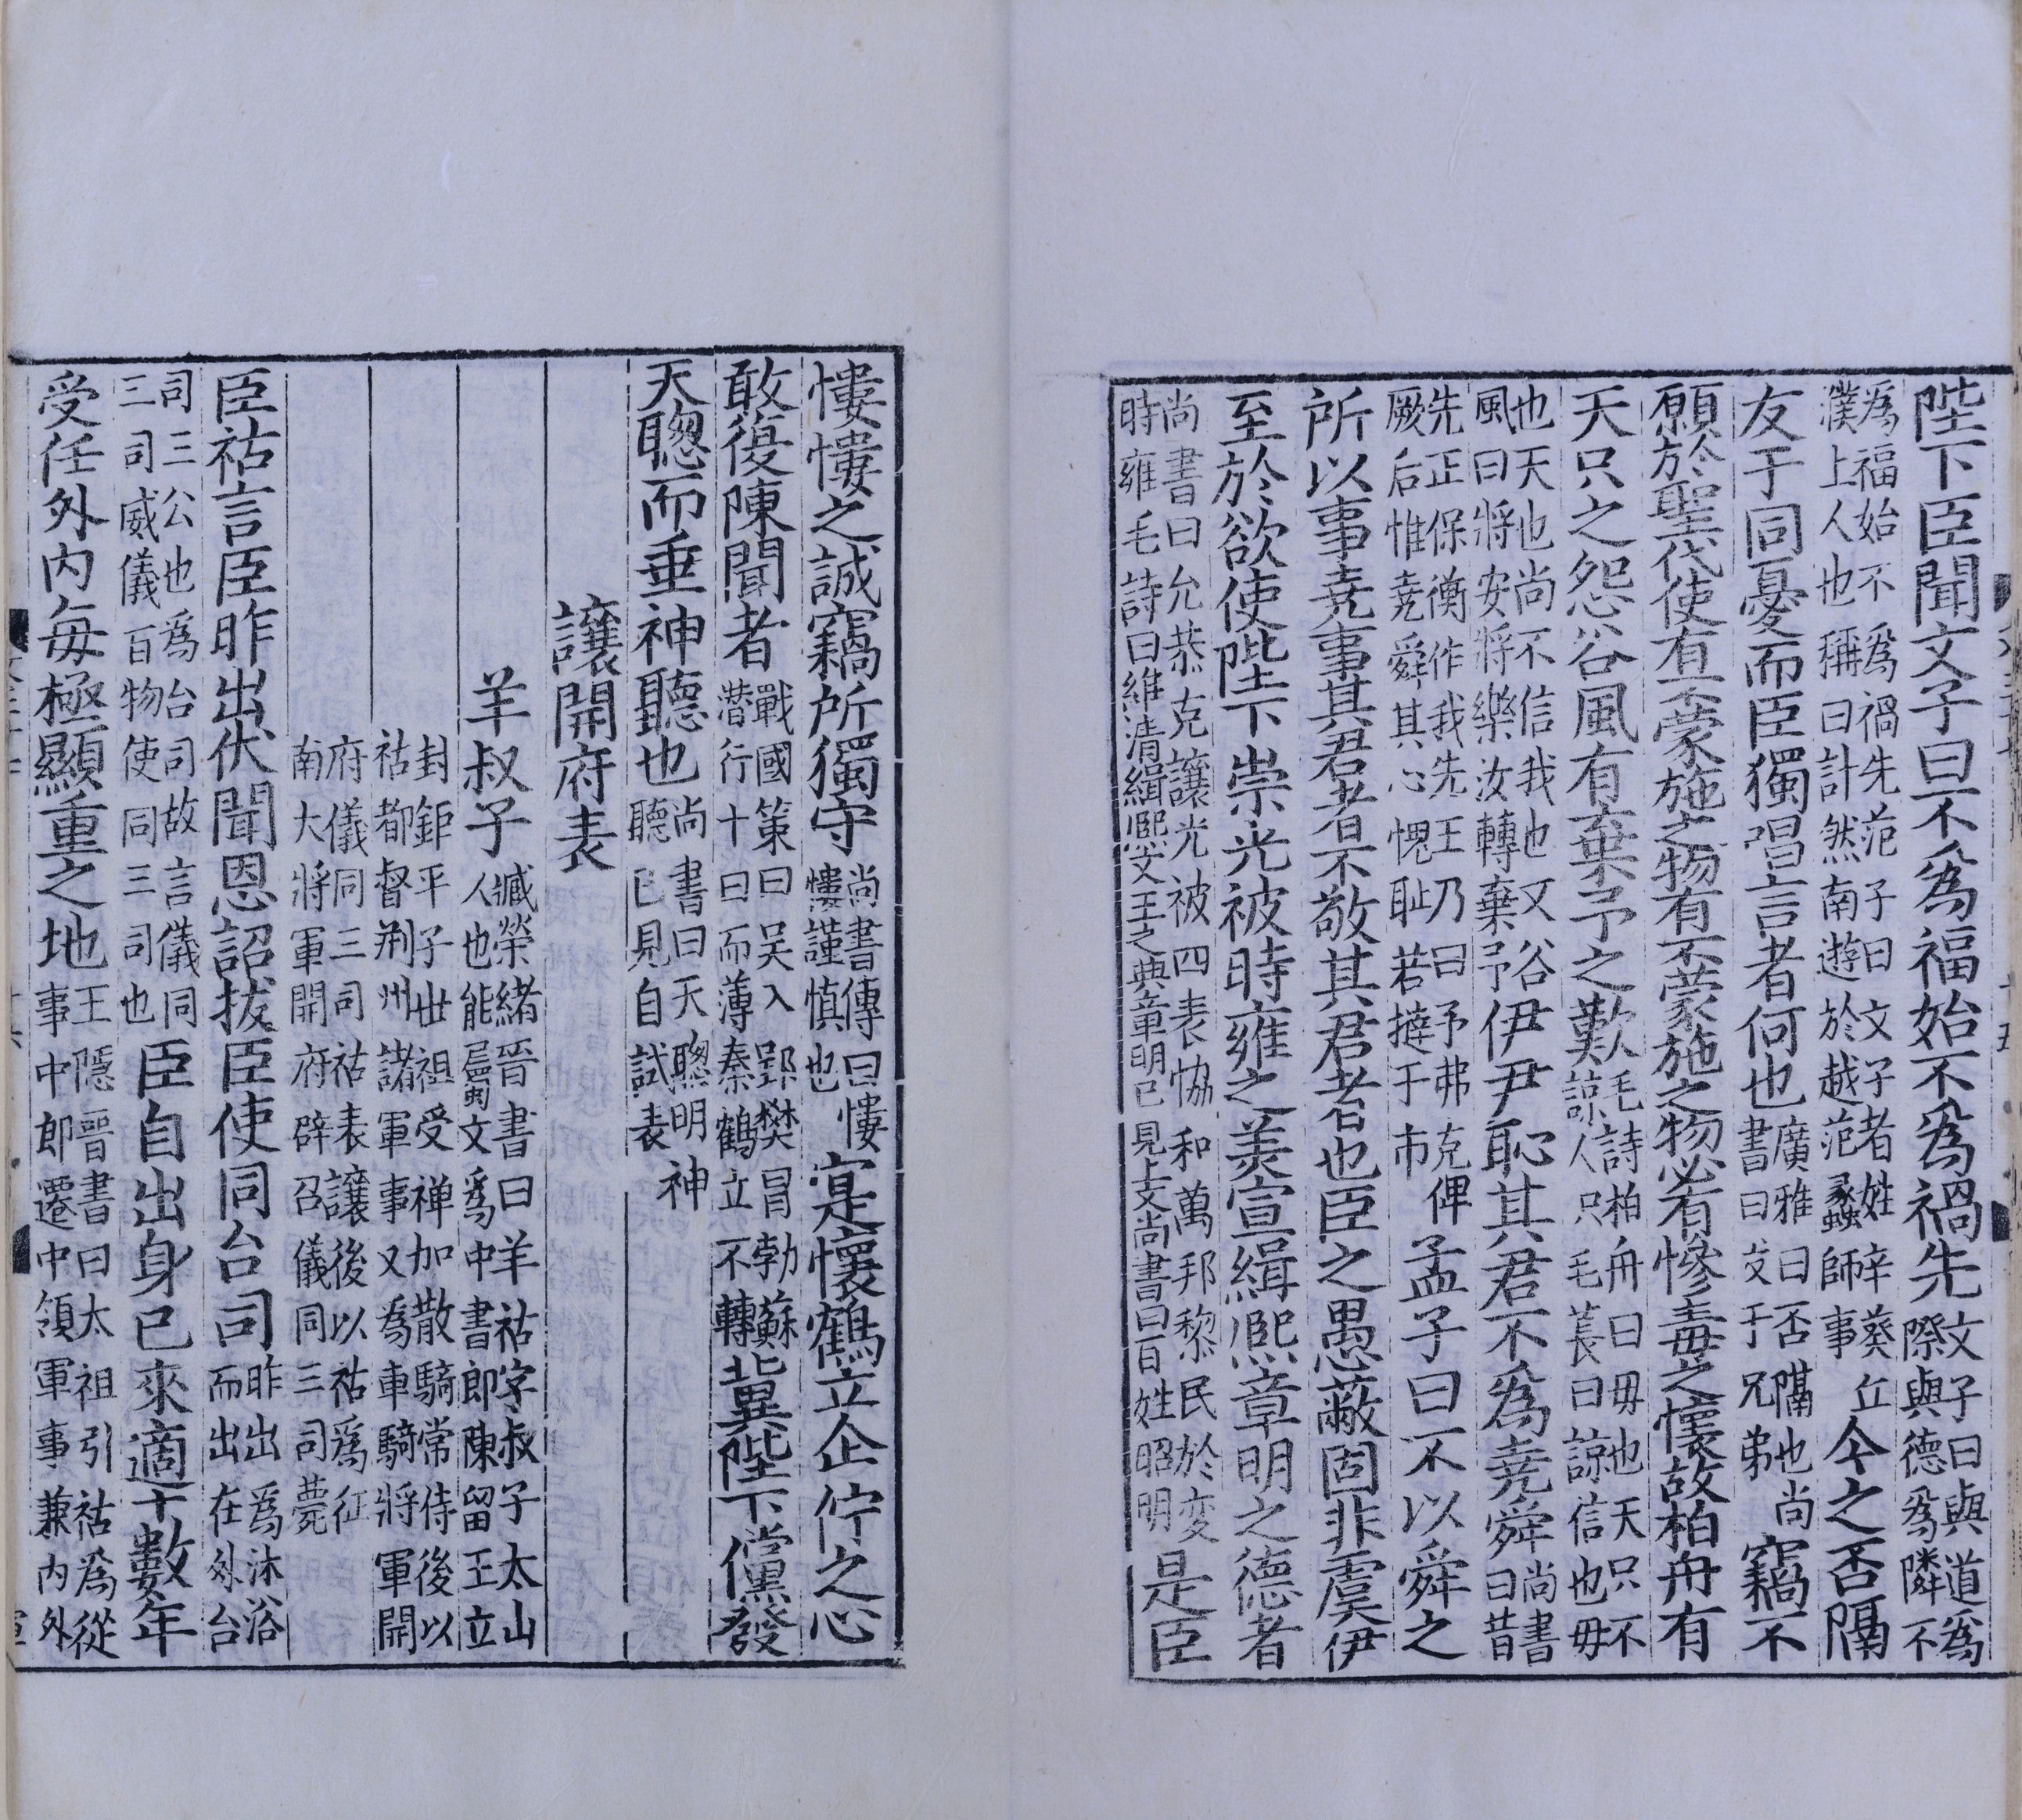 陛下臣聞文子曰不為福始不為禍先文子曰與道為際與德為隣不
為福始不為禍先范子曰文子者姓辛葵丘濮上人也稱曰計然南遊於越范蠡師事今之否隔
友于同憂而臣獨唱言者何也廣雅曰否隔也尚書曰友于兄弟竊不
願於聖代使有不蒙施之物有不蒙施之物必有慘毒之懷故柏舟有
天只之怨谷風有棄予之歎毛詩柏舟曰毋也天只不諒人只毛萇曰諒信也毋
也天也尚不信我也又谷風曰將安將樂汝轉棄予伊尹恥其君不為堯舜尚書曰昔
先正保衡作我先王乃曰予弗克俾厥后惟堯舜其心愧耻若撻于市孟子曰不以舜之
所以事堯事其君者不敬其君者也臣之愚蔽固非虞伊
至於欲使陛下崇光被時雍之美宣緝熙章明之德者
尚書曰允恭克讓光被四表恊和萬邦黎民於変時雍毛詩曰維清緝熙文王之典章明已見上文尚書曰百姓昭明是臣
慺慺之誠竊所獨守尚書傳曰慺慺謹慎也寔懷鶴立企佇之心
敢復陳聞者戰國策曰吴入郢樊冒勃蘇潜行十日而薄秦鶴立不轉兾陛下儻發
天聰而垂神聽也尚書曰天聰明神聽已見自試表
讓開府表
羊叔子臧榮緒晉書曰羊祜字叔子太山人也能屬文為中書郎陳留王立
封鉅平子世祖受禅加散騎常侍後以祜都督荆州諸軍事又為車騎將軍開
府儀同三司祜表讓後以祜為征南大將軍開府辟召儀同三司薨
臣祜言臣昨出伏聞恩詔拔臣使同台司昨出為沐浴而出出在外台
司三公也為台司故言儀同三司威儀百物使同三司也臣自出身已來適十數年
受任外内每極顯重之地王隱晉書曰太祖引祜為從事中郎遷中領軍事兼内外